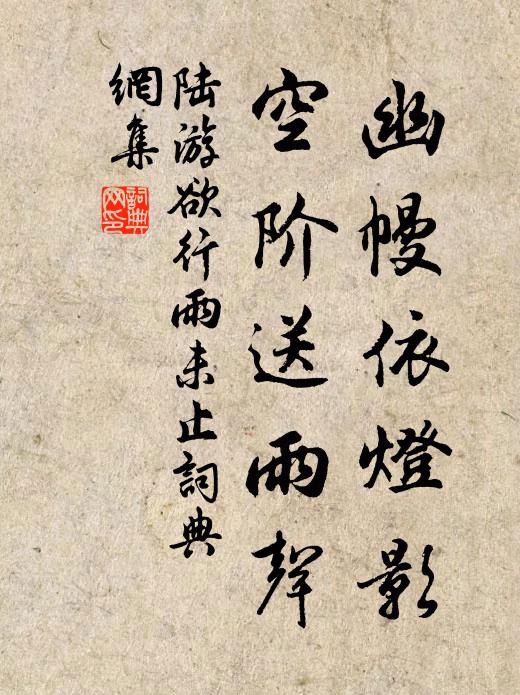 幽幔依燈影
空阶送雨聲
陆游欲行雨未止詞典
網集
詞典
网印